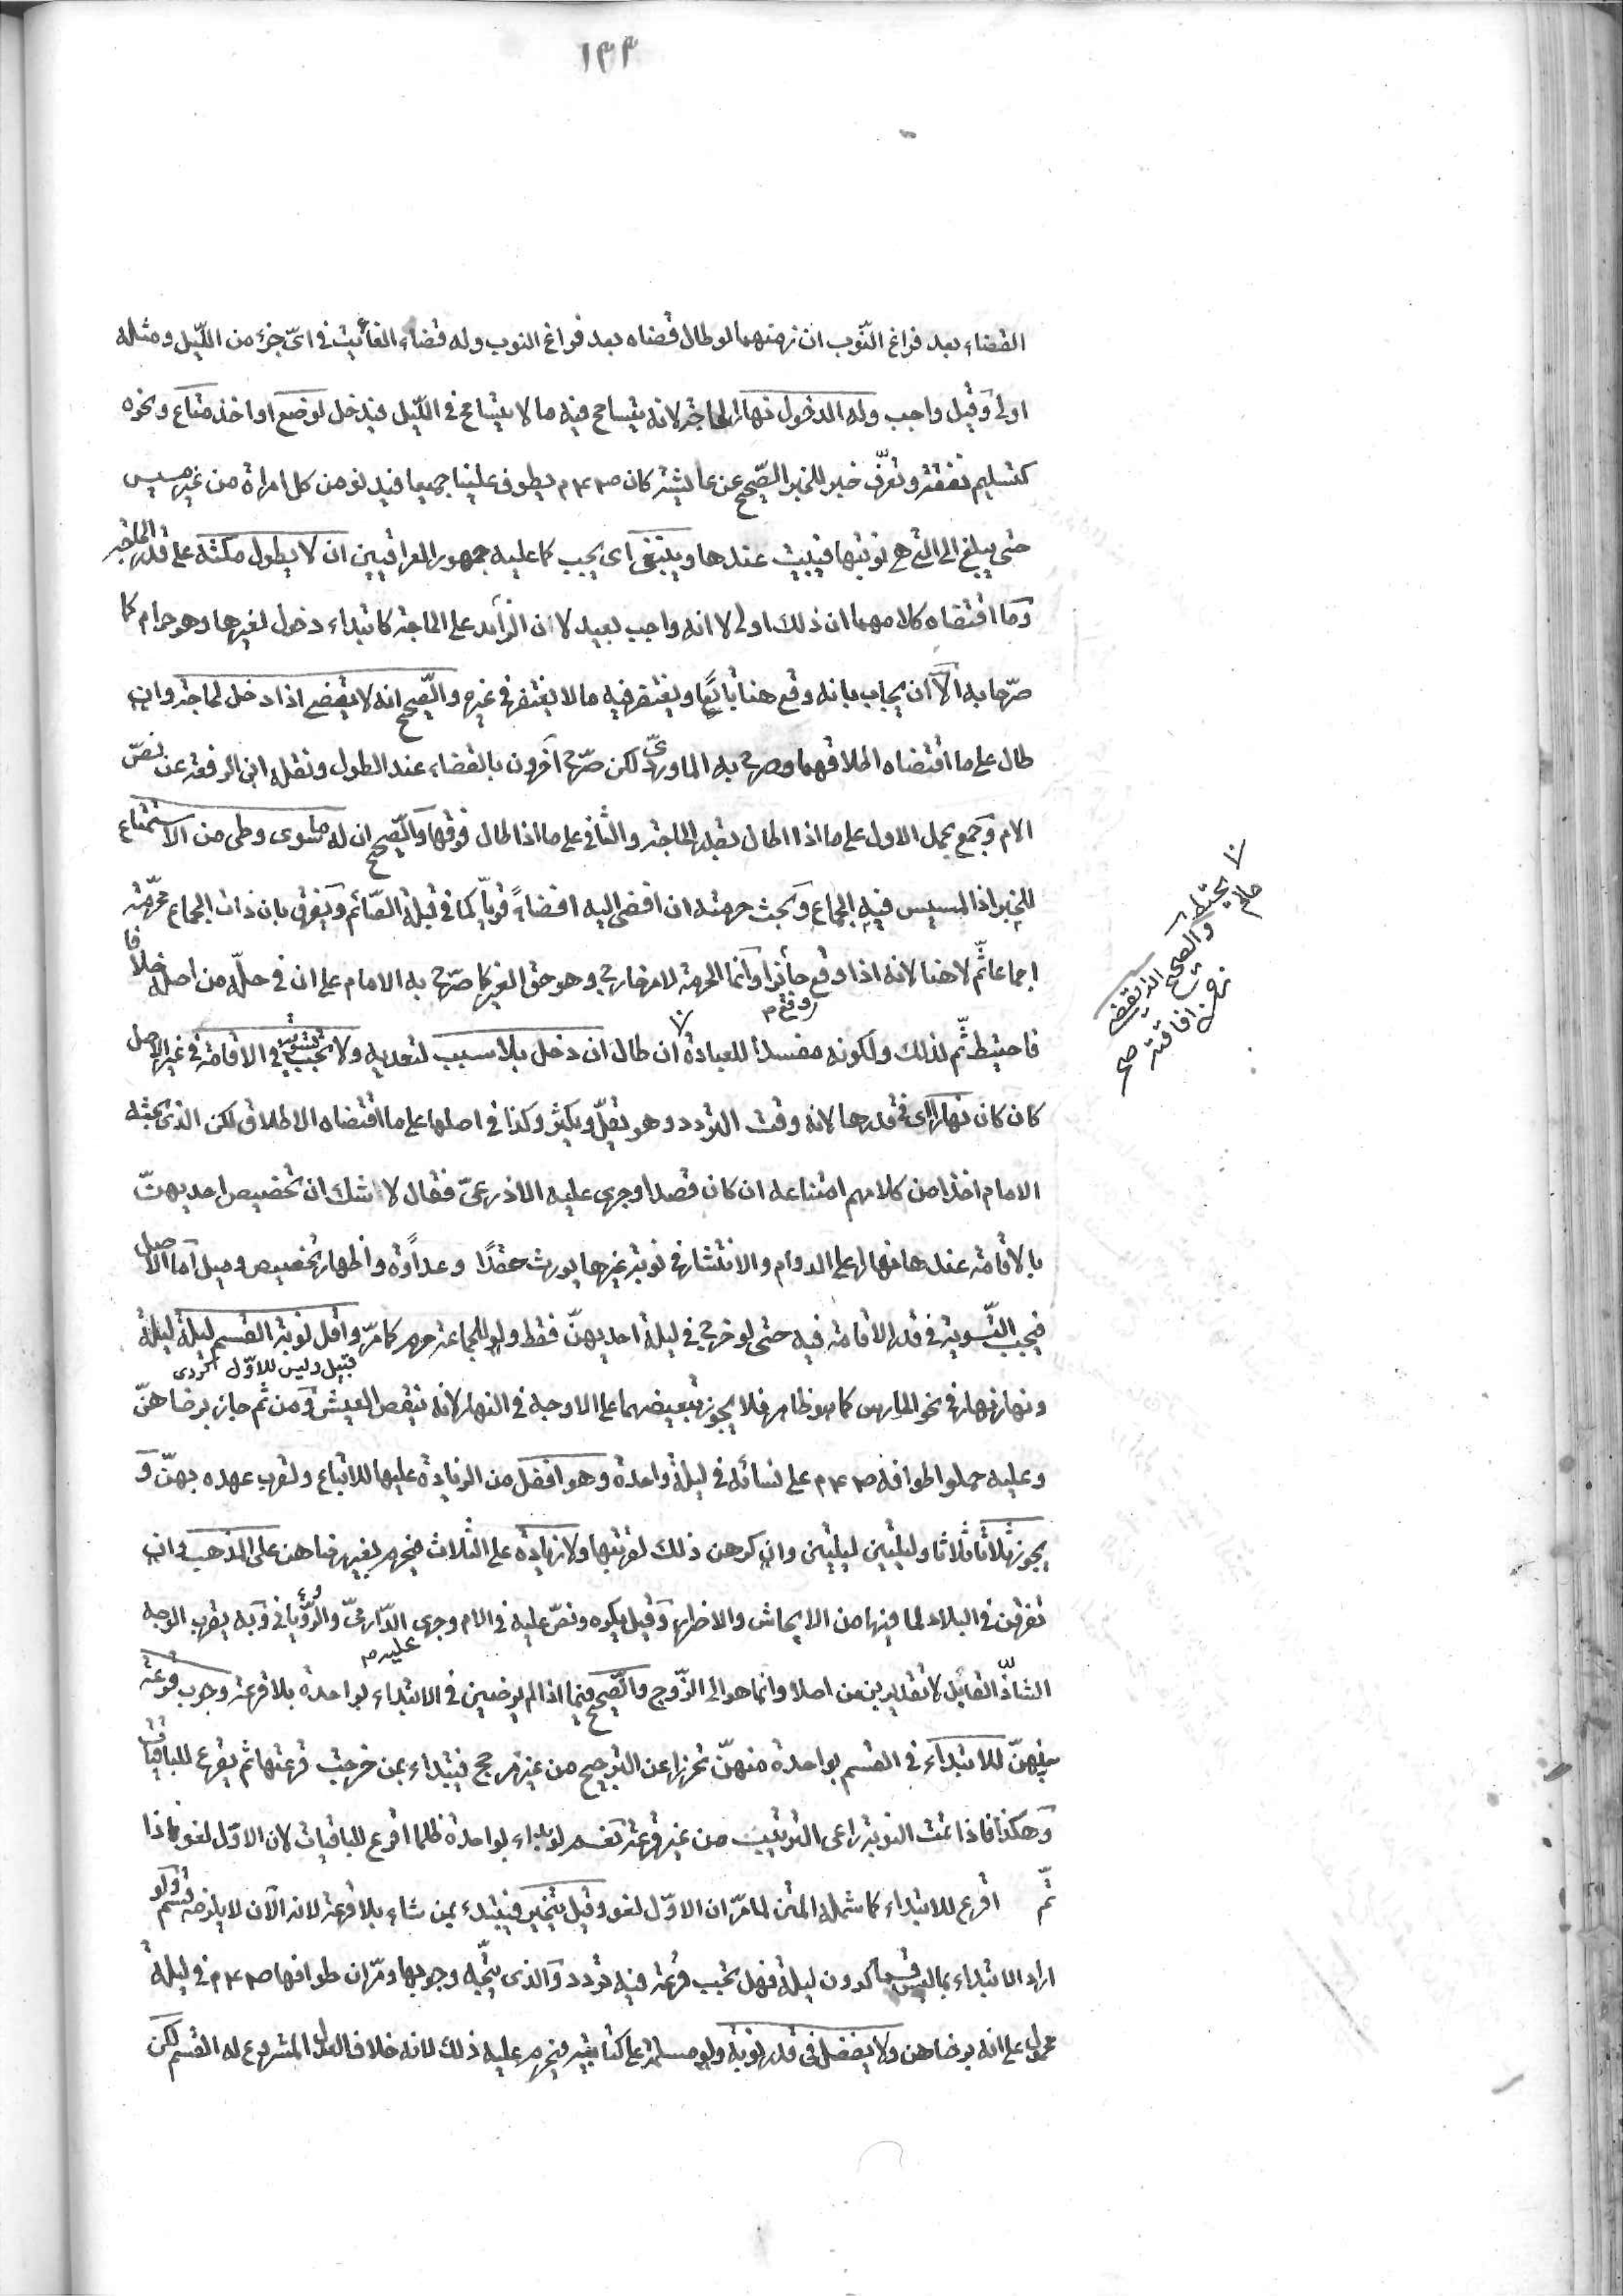 ١٣٣
القضاء بعد فراغ النّوب ان زمنهما لو طال قضاه بعد فراغ النوب وله قضاء الفائيت في اىّ جزء من اللّيل ومثله
اولى وَقيل واجب وله الدخول نهارا لحاجة لانه يتسامح فيه ما لا يتسامح في اللّيل فيدخل لوضع او اخذ متاع ونحوه
كتسليم نفقة وتعرّف خبر للخبر الصّحيح عن عايشة كان ص٤٤م يطوف علينا جميعا فيدنو من كل امراة من غير مسيس
حتى يبلغ الى التى هى نوبتها فيبيت عندها وينبغى اى يجب كما عليه جمهور العراقيين ان لا يطول مكثه على قدر الحاجة
وَما اقتضاه كلامهما ان ذلك اولى لا انه واجب بعيد لان الزأيد على الحاجة كابتداء دخول لغيرها وهو حرام كما
صرّحا به الاّ ان يجاب بانه وقع هنا تابعًا ويغتفر فيه ما لا يغتفر في غيره والصّحيح انه لا يقضى اذا دخل لحاجة وان
طال على ما اقتضاه اطلاقهما وصرح به الماوردىّ لكن صرّح آخرون بالقضاء عند الطول ونقله ابن الرفعة عن نصّ
الام وَجمع بحمل الاول على ما اذا طال بقدر الحاجة والثانى على ما اذا طال فوقها وَالصّحيح ان له ما سوى وطى من الاستمتاع
للخبر اذ المسيس فيه الجماع وَبحث حرمته ان افضى اليه افضاءً قويّا كما في قبلة الصّائم وَيفرق بان ذات الجماع محرّمة
اجماعا ثَمّ لا هنا لانه اذا وقع وقع م جأئزا وَانما الحرمة لامر خارج وهو حق الغير كما صرّح به الامام على ان في حلّه من اصله خلافا
فاحتيط ثَمّ لذلك ولكونه مفسدا للعبادة ٧ ان طال ان دخل بلا سبب لتعديه ولا تجب تسوية في الاقامة في غير الاصل
كان كان نهارا اى في قدرها لانه وقت التردد وهو يقلّ ويكثر وكذا في اصلها على ما اقتضاه الاطلاق لكن الذى بحثه
الامام اخذا من كلامهم امتناعه ان كان قصدا وجرى عليه الاذرعىّ فقال لا شك ان تخصيص احديهنّ
بالاقامة عندها نهارا على الدوام والانتشار في نوبة غيرها يورث حقدًا وعداوة واظهار تخصيص وميل اَما الاصل
فيجب التّسوية في قدر الاقامة فيه حتى لو خرج في ليلة احديهنّ فقط ولو للجماعة حرم كما مرّ واقل نوبة القسم ليلة ليلة
ونهار نهار في نحو الحارس كما هو ظاهر فلا يجوز تبعيضهما على الاوجه في النهار لانه ينغص العيش وَمن ثَم جاز برضاهنّ
وعليه حملوا طوافه ص٤٤م على نسائه في ليلة واحدة وهو افضل من الزيادة عليها للاتباع ولقرب عهده بهنّ وَ
يجوز ثلاثا ثلاثا وليلتين ليلتين وان كرهن ذلك لقربها ولا زيادة على الثلاث فيحرم بغير رضاهن على المذهب وان
تفرقن في البلاد لما فيها من الايحاش والاضرار وَقيل يكره ونصّ عليه في الام وجرى عليه م الدّارمىّ والرّؤيانى وَبه يقرب الوجه
الشاذّ القائل لا تقدير بزمن اصلا وانما هو الى الزّوج والصّحيح فيما اذا لم يرضين في الابتداء بواحدة بلا قرعة وجوب قرعة
بينهنّ للابتداء في القسم بواحدة منهنّ تحرزا عن الترجيح من غير مرجح فيبتداء بمن خرجت قرعتها ثم يقرع للباقيات
وَهكذا فاذا تمت النوبة راعى الترتيب من غير قرعة نعم لو بداء بواحدة ظلما اقرع للباقيات لان الاوّل لغو فاذا
تَمّ اقرع للابتداء كما شمله المتن لما مرّ ان الاوّل لغو وقيل يتخير فيبتدء بمن شاء بلا قرعة لانه الآن لا يلزمه قسم ولو
اراد الابتداء بما ليس قسما كدون ليلة فهل تجب قرعة فيه تردد وَالذى يتّجه وجوبها ومرّ ان طوافها ص٤٤م في ليلة
محمول على انه برضاهن ولا يفضل في قدر نوبة ولو مسلمة على كتابية فيحرم عليه ذلك لانه خلاف العدل المشروع له القسم لكن
٧ يحتط
والصحيح انه يقضى
زمن اقامته صح